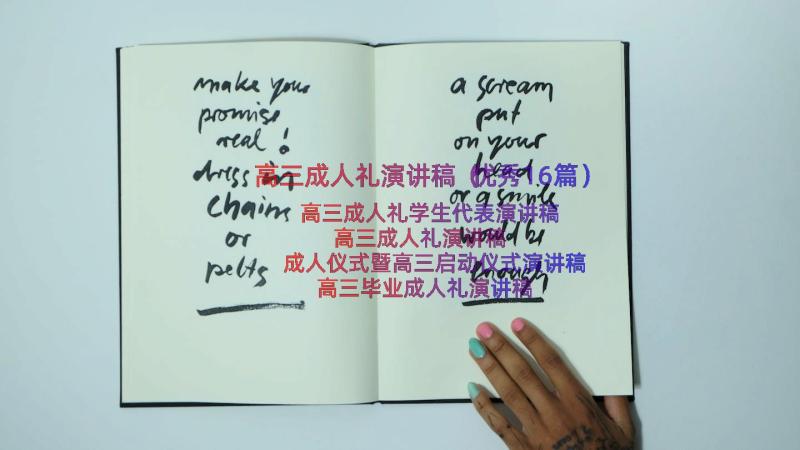 make your
promise
real!
dress in
chains
or
pelts
a scream
put
on your
head
or a smile
would be
enough
高三成人礼演讲稿（优秀16篇）
高三成人礼学生代表演讲稿
高三成人礼演讲稿
成人仪式暨高三启动仪式演讲稿
高三毕业成人礼演讲稿